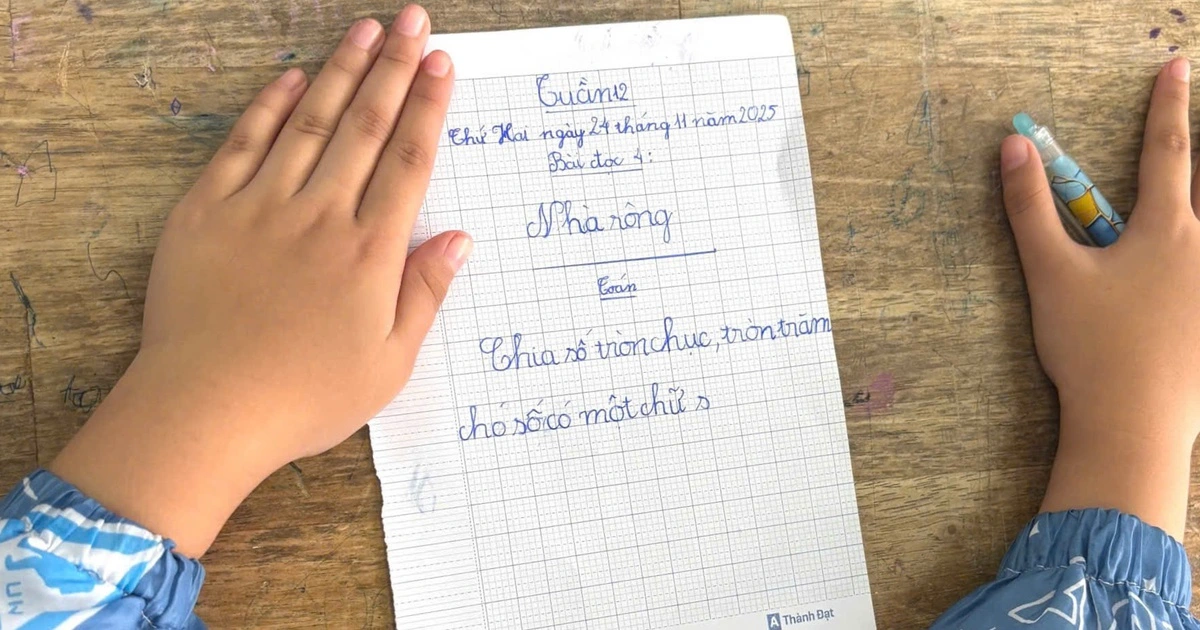 Tuần 12
Thứ Hai ngày 24 tháng 11 năm 2025
Bài đọc 4:
Nhà rông
Toán
Chia số tròn chục, tròn trăm
chó số có một chữ s
A Thành Đạt